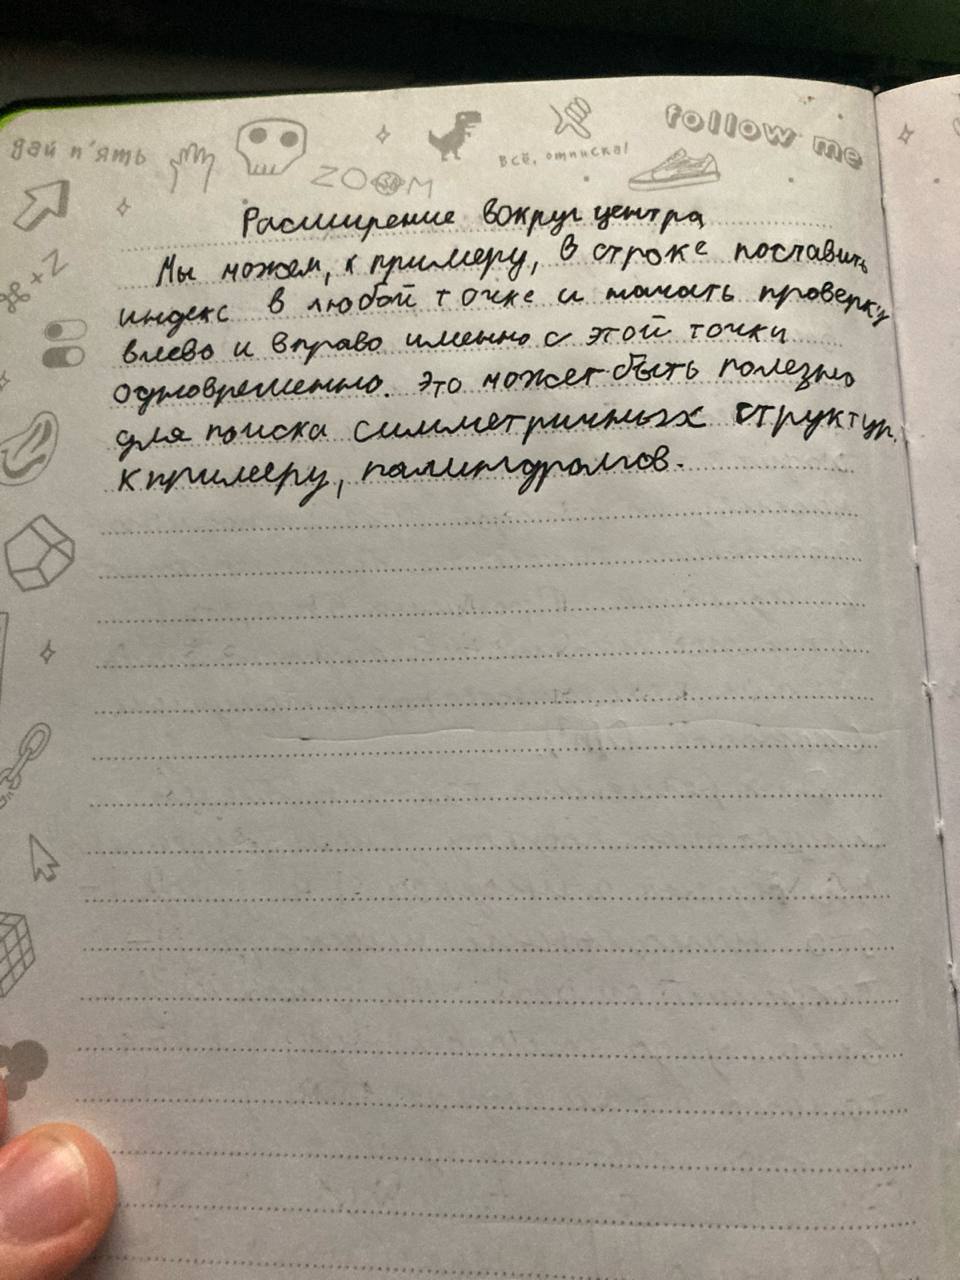 дай п'ять
ZOOM
Всё, отписка!
follow me
⌘+Z
Расширение вокруг центра
Мы можем, к примеру, в строке поставить
индекс в любой точке и начать проверку
влево и вправо именно с этой точки
одновременно. Это может быть полезно
для поиска симметричных структур,
к примеру, палиндромов.